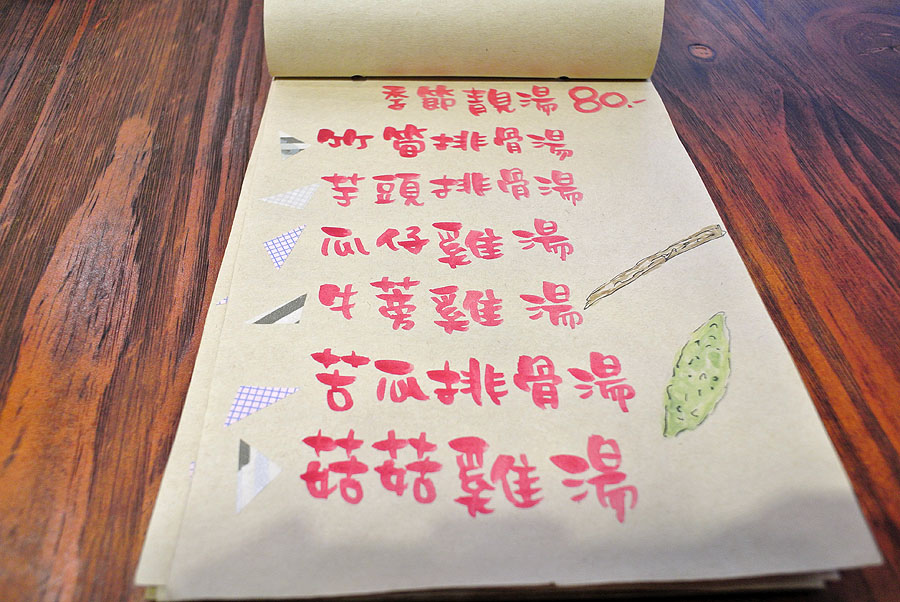 季節靚湯 80.-
竹筍排骨湯
芋頭排骨湯
瓜仔雞湯
牛蒡雞湯
苦瓜排骨湯
菇菇雞湯